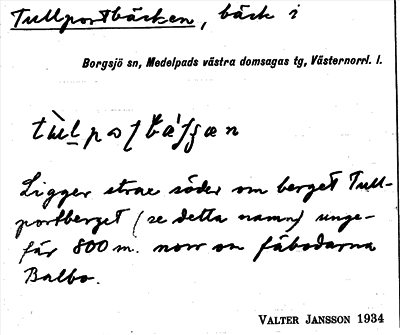 Tullportbäcken, bäck i
Borgsjö sn, Medelpads västra domsagas tg, Västernorrl. l.
Ligger strax söder om berget Tull-
portberget (se detta namn) unge-
fär 800 m. norr om fäbodarna
Balbo.
VALTER JANSSON 1934